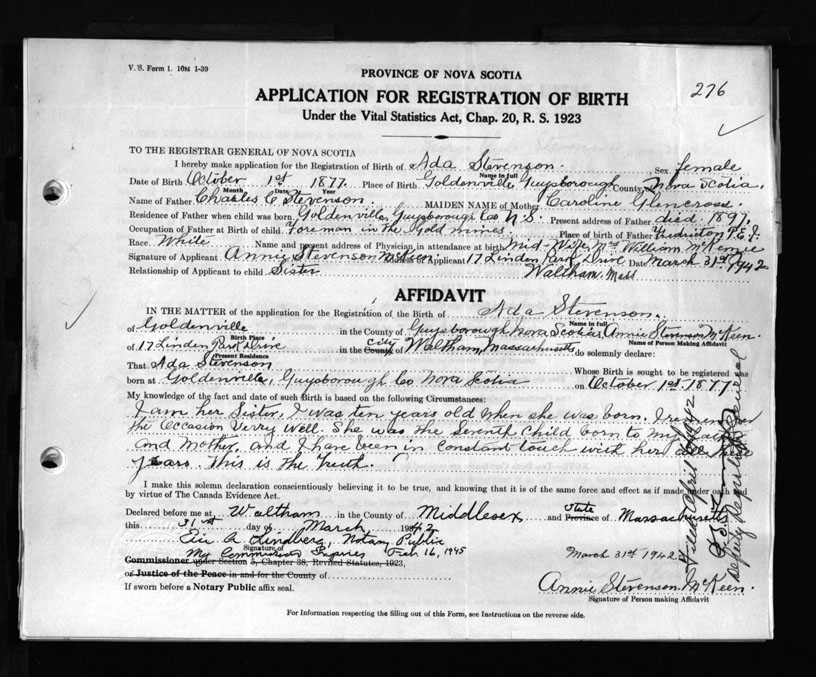 V. S. Form 1. 10M 1-39
276
PROVINCE OF NOVA SCOTIA
APPLICATION FOR REGISTRATION OF BIRTH
Under the Vital Statistics Act, Chap. 20, R. S. 1923
TO THE REGISTRAR GENERAL OF NOVA SCOTIA
I hereby make application for the Registration of Birth of Ada Stevenson. Sex female
Name in full
Date of Birth October 1st 1877. Place of Birth Goldenville, Guysborough County Nova Scotia.
Month Date Year
Name of Father Charles C Stevenson. MAIDEN NAME of Mother Caroline Glencross.
Residence of Father when child was born Goldenville, Guysborough Co N.S. Present address of Father died 1897.
Occupation of Father at Birth of child Foreman in the Gold mines. Place of birth of Father P.E.I.
Race. White Name and present address of Physician in attendance at birth Mid-Wife, Mrs William McKenzie
Signature of Applicant Annie Stevenson McKeen. Address of Applicant 17 Linden Park Drive Date March 31st 1942
Relationship of Applicant to child Sister. Waltham, Mass
AFFIDAVIT
IN THE MATTER of the application for the Registration of the Birth of Ada Stevenson.
Name in full
of Goldenville in the County of Guysborough Nova Scotia, Annie Stevenson McKeen.
Birth Place Name of Person Making Affidavit
of 17 Linden Park Drive in the County City of Waltham, Massachusetts do solemnly declare:
Present Residence
That Ada Stevenson Whose Birth is sought to be registered was
born at Goldenville, Guysborough Co Nova Scotia on October 1st 1877.
My knowledge of the fact and date of such Birth is based on the following Circumstances:
I am her Sister, I was ten years old when she was born. I remember
the Occasion Verry Well. She was the Seventh Child born to my Father
and Mother, and I have been in Constant touch with her all these
years. this is the Truth.
I make this solemn declaration conscientiously believing it to be true, and knowing that it is of the same force and effect as if made under oath and
by virtue of The Canada Evidence Act.
Declared before me at Waltham in the County of Middlesex and Province State of Massachusetts
this 31st day of March, 1942
Eric A. Lindberg, Notary Public
Signature of
My Commission Expires Feb 16, 1945
March 31st 1942
Commissioner under Section 5, Chapter 38, Revised Statutes, 1923,
or Justice of the Peace in and for the County of
Annie Stevenson McKeen.
If sworn before a Notary Public affix seal.
Signature of Person making Affidavit
For Information respecting the filling out of this Form, see Instructions on the reverse side.
Filed April
Deputy Registrar General